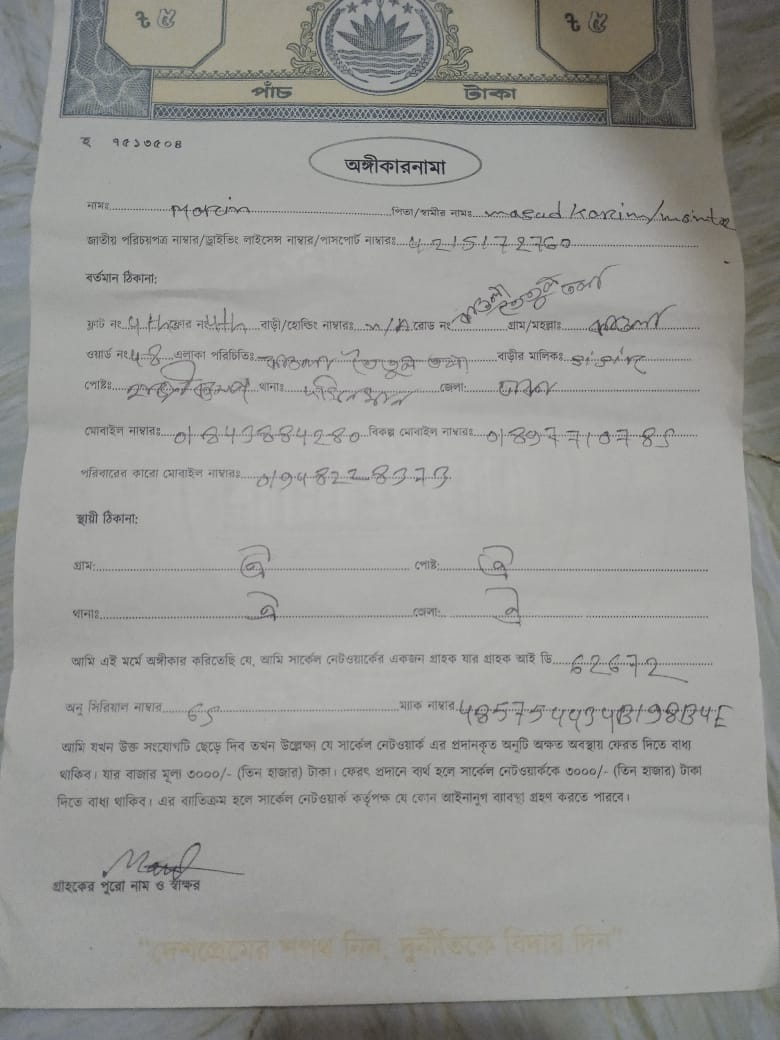 পাঁচ টাকা
হ ৭৫১৩৫০৪
অঙ্গীকারনামা
নামঃ পিতা/স্বামীর নামঃ masud Karim/
জাতীয় পরিচয়পত্র নাম্বার/ড্রাইভিং লাইসেন্স নাম্বার/পাসপোর্ট নাম্বারঃ 4215172760
বর্তমান ঠিকানা:
ফ্লাট নং 4th ফ্লোর নং 4th বাড়ী/হোল্ডিং নাম্বারঃ n/A রোড নং গ্রাম/মহল্লাঃ কাওলা
ওয়ার্ড নং 48 এলাকা পরিচিতিঃ কাওলা তেতুল তলা বাড়ীর মালিকঃ
পোষ্টঃ থানাঃ দক্ষিনখান জেলা: ঢাকা
মোবাইল নাম্বারঃ 01843884280 বিকল্প মোবাইল নাম্বারঃ 01897710785
পরিবারের কারো মোবাইল নাম্বারঃ
স্থায়ী ঠিকানা:
গ্রাম: ঐ পোষ্ট: ঐ
থানাঃ ঐ জেলা: ঐ
আমি এই মর্মে অঙ্গীকার করিতেছি যে, আমি সার্কেল নেটওয়ার্কের একজন গ্রাহক যার গ্রাহক আই ডি 62672
অনু সিরিয়াল নাম্বার 65 ম্যাক নাম্বার 485754434B198B4E
আমি যখন উক্ত সংযোগটি ছেড়ে দিব তখন উল্লেক্ষ্য যে সার্কেল নেটওয়ার্ক এর প্রদানকৃত অনুটি অক্ষত অবস্থায় ফেরত দিতে বাধ্য
থাকিব। যার বাজার মূল্য ৩০০০/- (তিন হাজার) টাকা। ফেরৎ প্রদানে ব্যর্থ হলে সার্কেল নেটওয়ার্ককে ৩০০০/- (তিন হাজার) টাকা
দিতে বাধ্য থাকিব। এর ব্যতিক্রম হলে সার্কেল নেটওয়ার্ক কর্তৃপক্ষ যে কোন আইনানুগ ব্যাবস্থা গ্রহণ করতে পারবে।
গ্রাহকের পুরো নাম ও স্বাক্ষর
"দেশপ্রেমের শপথ নিন, দুর্নীতিকে বিদায় দিন"